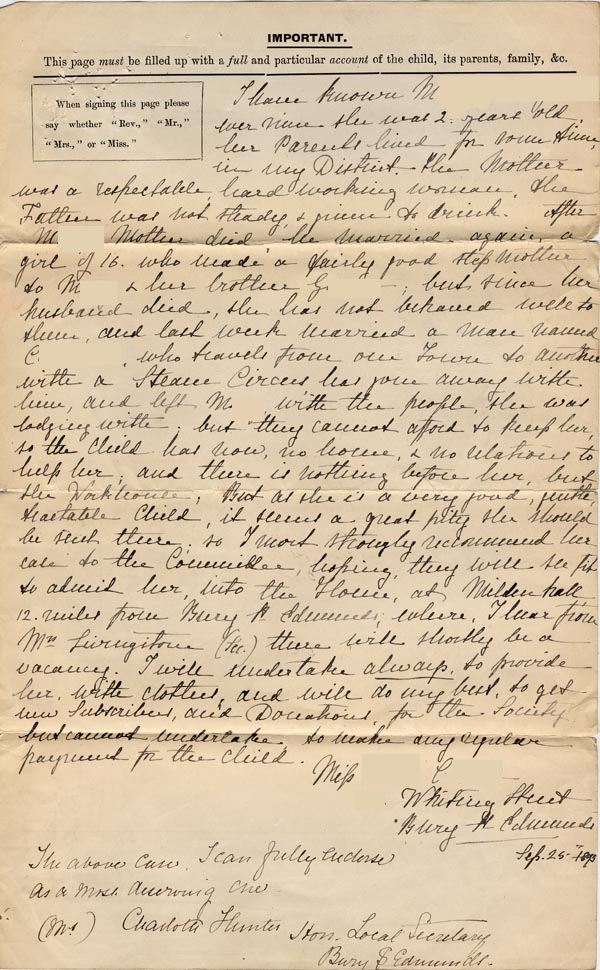 IMPORTANT.
This page must be filled up with a full and particular account of the child, its parents, family, &c.
When signing this page please
say whether "Rev.," "Mr.,"
"Mrs.," or "Miss."
I have known M
ever since she was 2 years old
her Parents lived for some time,
in my District. The Mother
was a respectable, hard working woman, the
Father was not steady, & given to drink. After
M Mother died he married again, a
girl of 16. who made a fairly good step Mother
to M & her brother G ; but since her
husband died, she has not behaved well to
them, and last week married a man named
C. , who travels from one Town to another
with a Steam Circus has gone away with
him, and left M with the people, she was
lodging with; but they cannot afford to keep her,
so the child has now, no home, & no relations to
help her; and there is nothing before her, but
the Workhouse; But as she is a very good, gentle,
tractable child, it seems a great pity she should
be sent there, so I most strongly recommend her
case to the Committee, hoping, they will see fit
to admit her, into the Home, at Mildenhall
12. miles from Bury St Edmunds, where, I hear from
Mrs Livingstone (Sec.) there will shortly be a
vacancy. I will undertake always, to provide
her, with clothes, and will do my best, to get
new Subscribers, and Donations, for the Society,
but cannot undertake to make any regular
payment for the child.
Miss L
Whiting Street
Bury St Edmunds
Sep. 25th 1893
The above case I can fully endorse
as a most deserving one
(Mrs) Charlotte Hunter Hon. Local Secretary
Bury St Edmunds.